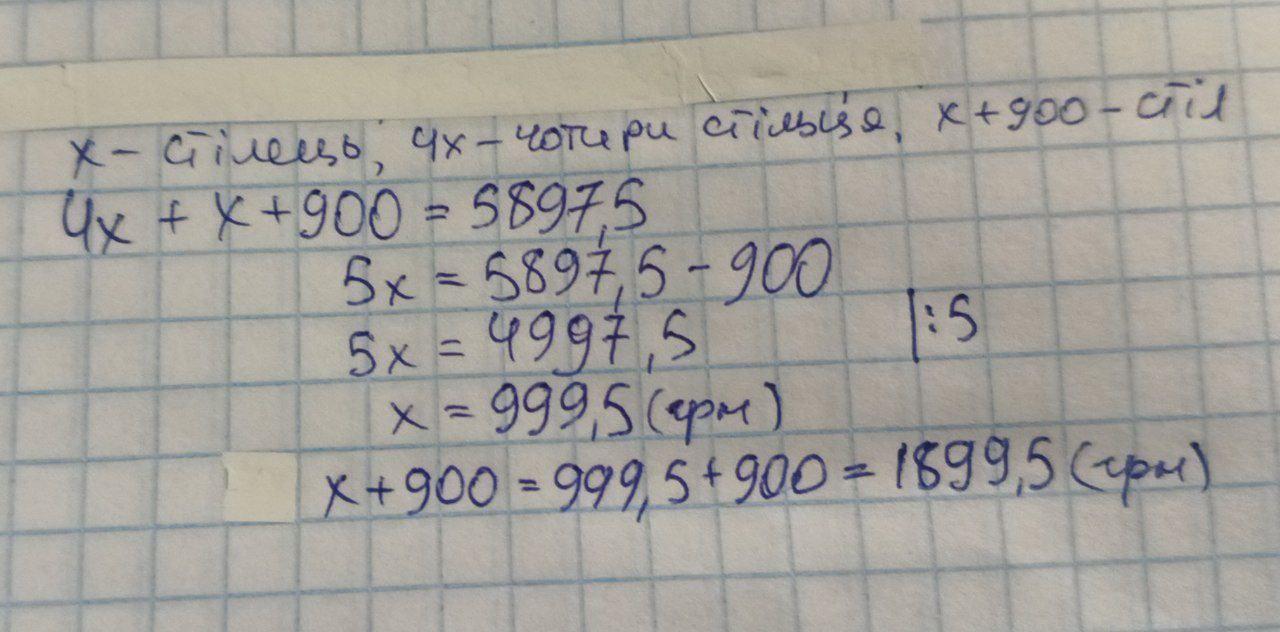 х – стілець, 4х – чотири стільця, х + 900 – стіл
4х + х + 900 = 5897,5
5х = 5897,5 - 900
5х = 4997,5 |:5
х = 999,5 (грн)
х + 900 = 999,5 + 900 = 1899,5 (грн)